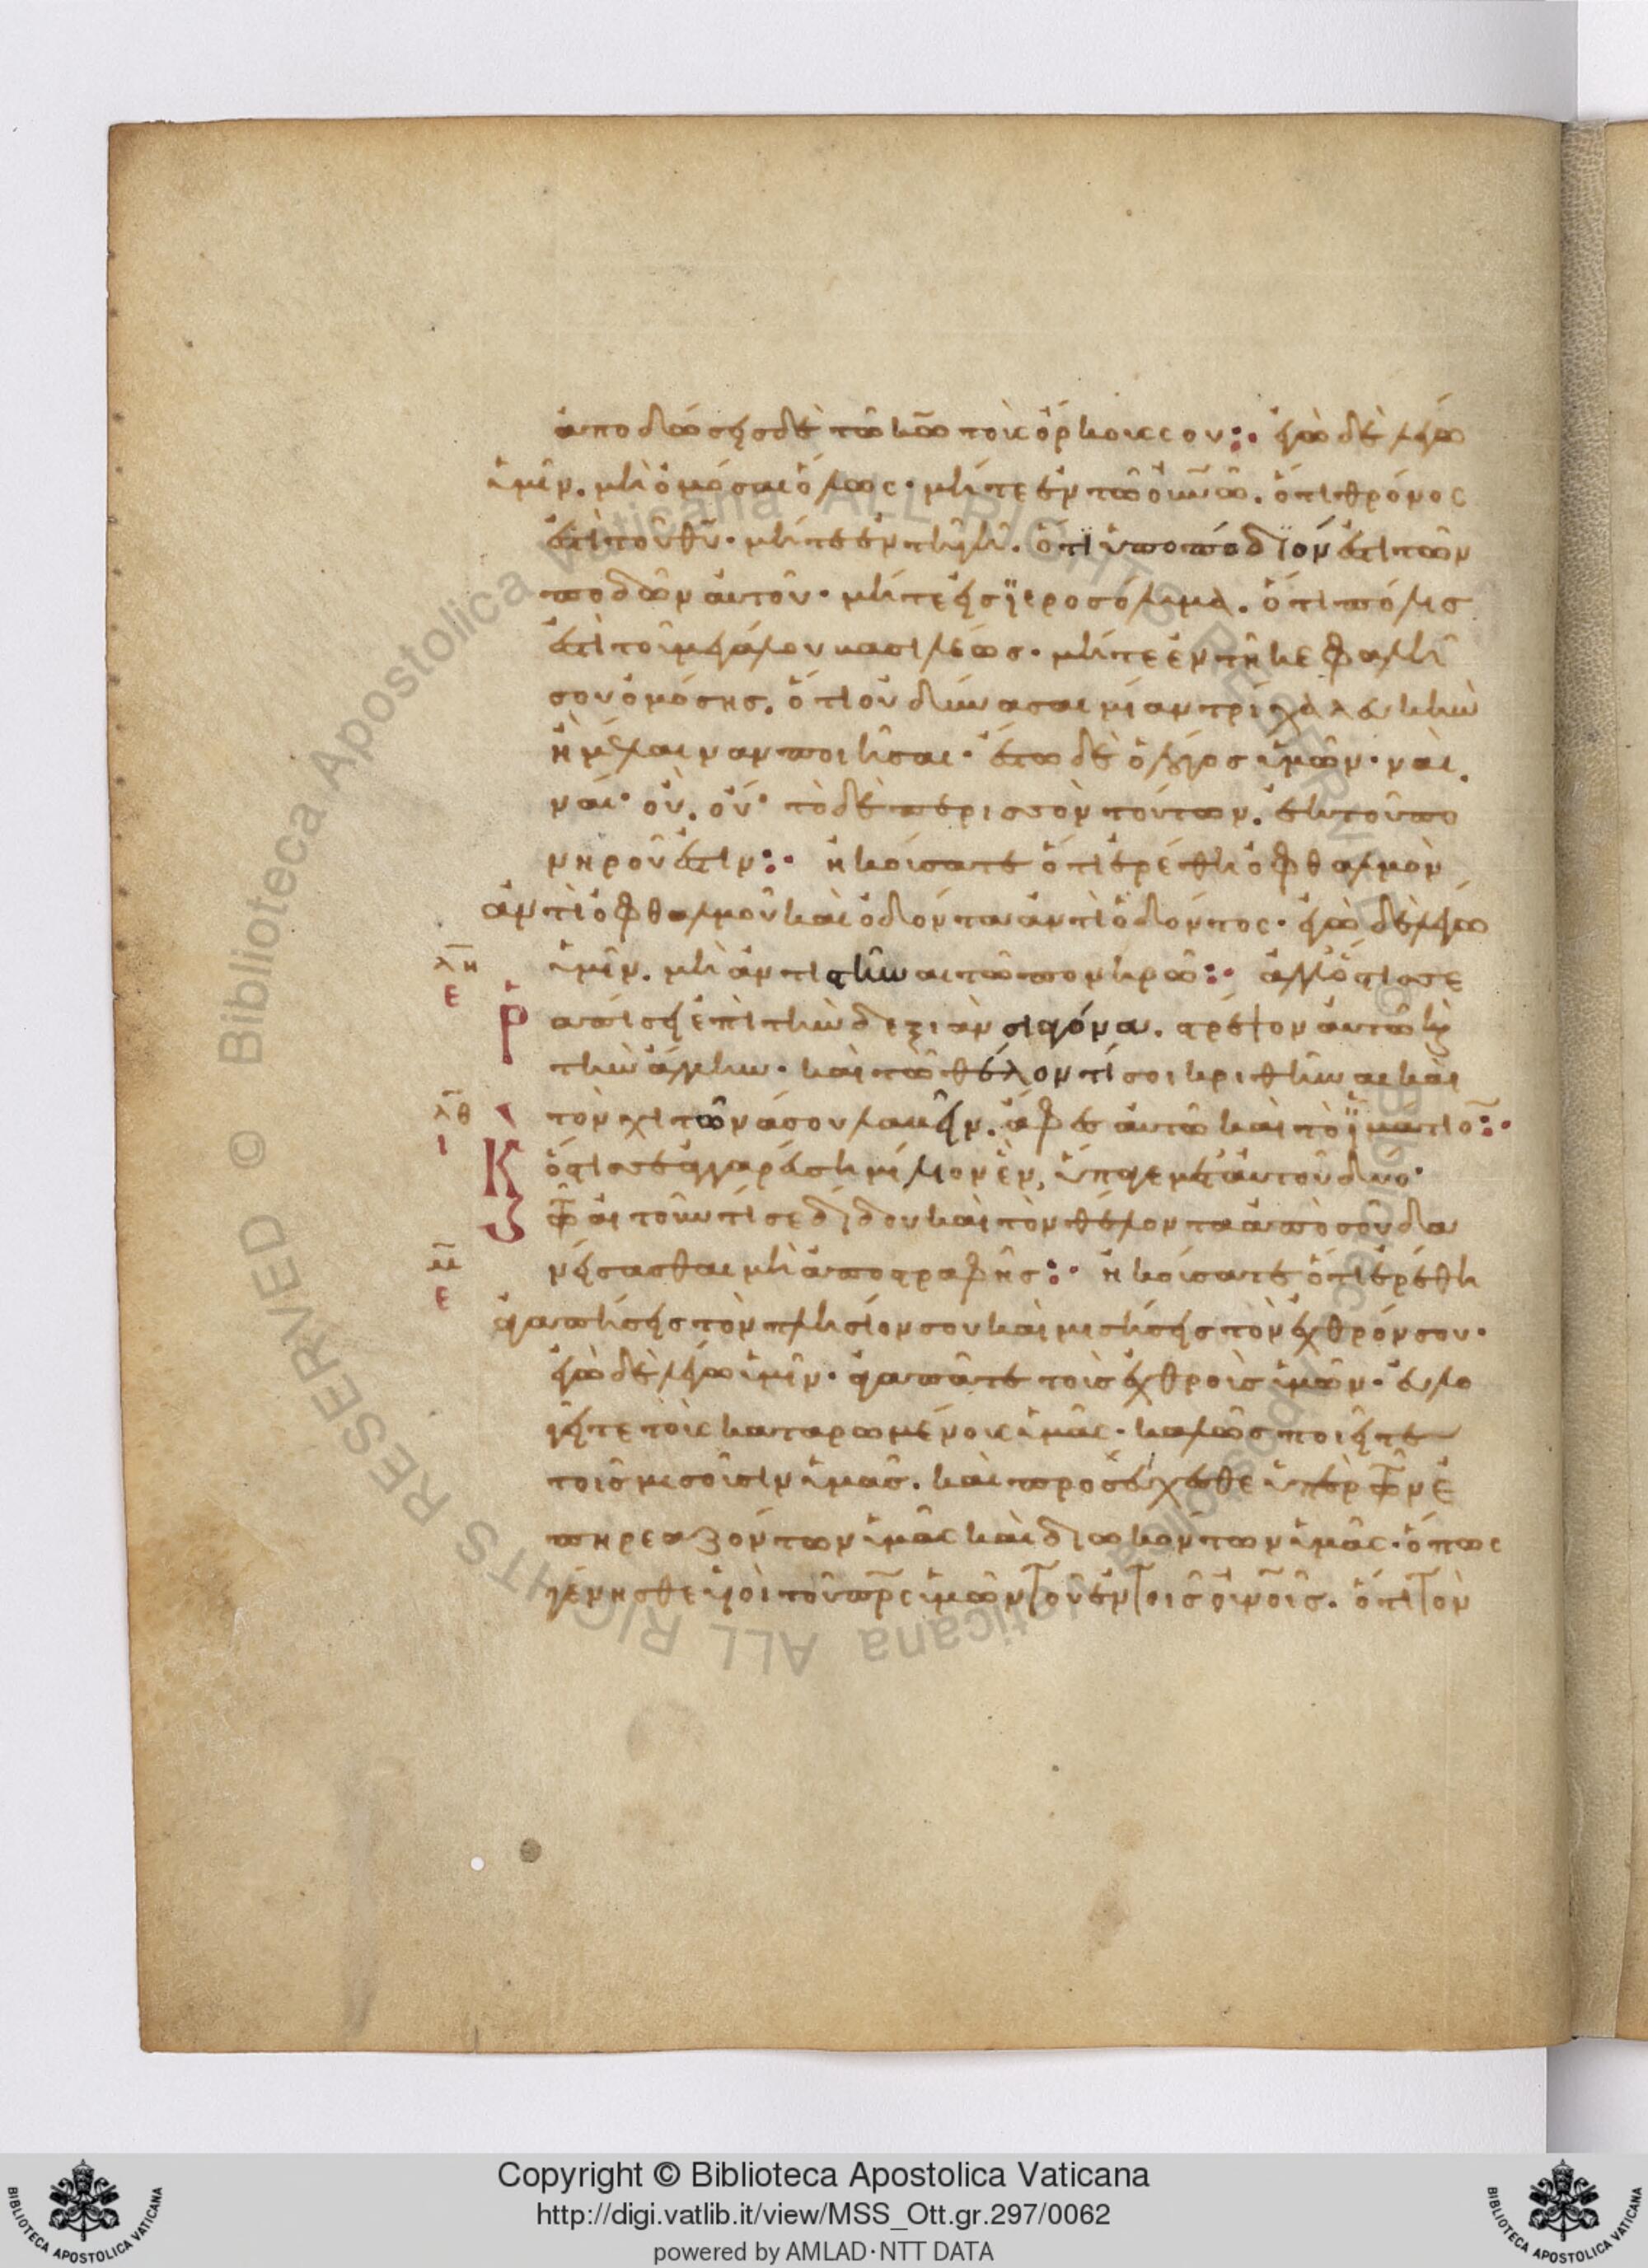 ἀποδώσεις δὲ τῶ κω τοὺς ὅρκους σου : ἐγὼ δὲ λέγω
ὑμῖν. μὴ ὀμόσαι ὅλως· μήτε ἐν τῶ οὐνῶ. ὅτι θρόνος
ἐστὶ τοῦ θυ· μήτε ἐν τῆ γῆ. ὅτι ὑποπόδιόν ἐστι τῶν
ποδῶν αὐτοῦ· μήτε εἰς ϊεροσόλυμα. ὅτι πόλις
ἐστὶ τοῦ μεγάλου βασιλέως· μήτε ἐν τῆ κεφαλῆ
σου ὀμόσης. ὅτι οὐ δύνασαι μίαν τρίχα λευκὴν
ἢ μέλαιναν ποιῆσαι· ἔστω δὲ ὁ λόγος ὑμῶν· ναὶ.
ναί· οὒ. οὔ· τὸ δὲ περισσὸν τούτων. ἐκ τοῦ πο
νηροῦ ἐστιν : ἠκούσατε ὅτι ἐρέθη ὀφθαλμὸν
ἀντὶ ὀφθαλμοῦ καὶ ὀδόντα ἀντὶ ὀδόντος· ἐγὼ δὲ λέγω
λη ὑμῖν. μὴ ἀντιστῆναι τῶ πονηρῶ : ἀλλ' ὅστις σε
ε ῥ απίσει ἐπὶ τὴν δεξιὰν σιαγόνα. στρέψον αὐτῶ κ
τὴν ἄλλην· καὶ τῶ θέλοντί σοι κριθῆναι καὶ
λθ τὸν χιτῶνά σου λαβεῖν. ἄφες αὐτῶ καὶ τὸ ϊμάτιο :
ι Κ ὅστις σε ἀγγαρεύση μίλιον ἓν, ὕπαγε μετ' αὐτοῦ δύο·
τῶ αἰτοῦντί σε δίδου καὶ τὸν θέλοντα ἀπὸ σοῦ δα
μ νείσασθαι μὴ ἀποστραφῆς : ἠκούσατε ὅτι ἐρέθη
ε ἀγαπήσεις τὸν πλησίον σου καὶ μισήσεις τὸν ἐχθρόν σου·
ἐγὼ δὲ λέγω ὑμῖν· ἀγαπᾶτε τοὺς ἐχθροὺς ὑμῶν· εὐλο
γεῖτε τοὺς καταρωμένους ὑμᾶς· καλῶς ποιεῖτε
τοῖς μισοῦσιν ὑμᾶς. καὶ προσεύχεσθε ὑπὲρ τῶν ἐ
πηρεαζόντων ὑμᾶς καὶ διωκόντων ὑμᾶς· ὅπως
γένησθε υἱοὶ τοῦ πρς ὑμῶν τοῦ ἐν τοῖς οὐνοῖς. ὅτι τὸν
Copyright © Biblioteca Apostolica Vaticana
http://digi.vatlib.it/view/MSS_Ott.gr.297/0062
powered by AMLAD·NTT DATA
© Biblioteca Apostolica Vaticana ALL RIGHTS RESERVED
BIBLIOTECA APOSTOLICA VATICANA
BIBLIOTECA APOSTOLICA VATICANA